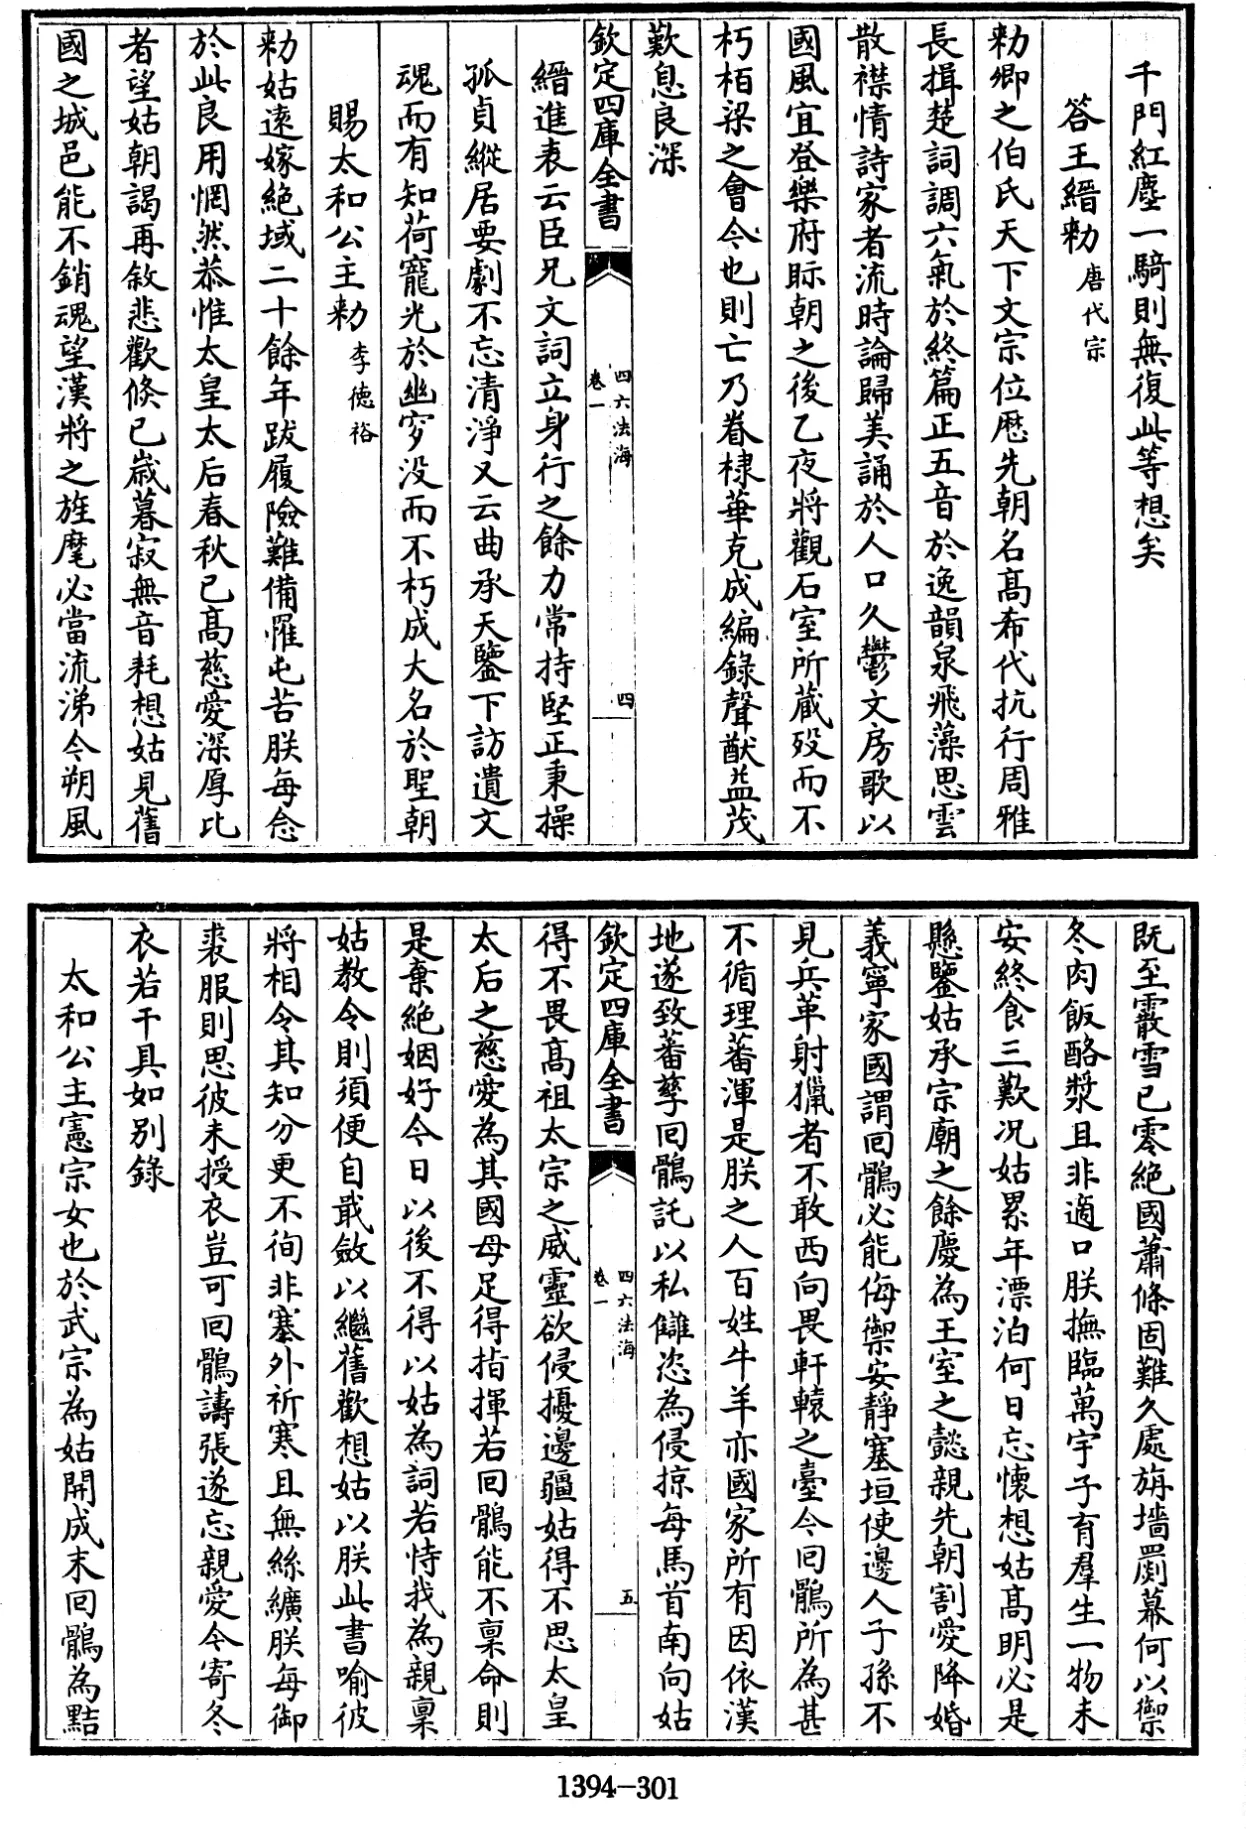 千門紅塵一騎則無復此等想矣
答王縉勅唐代宗
勅卿之伯氏天下文宗位歷先朝名髙希代抗行周雅
長揖楚詞調六氣於終篇正五音於逸韻泉飛藻思雲
散襟情詩家者流時論歸美誦於人口久鬱文房歌以
國風宜登樂府眎朝之後乙夜將觀石室所蔵殁而不
朽栢梁之會今也則亡乃眷棣華克成編錄聲猷益茂
歎息良深
欽定四庫全書
四六法海
卷一
四
縉進表云臣兄文詞立身行之餘力常持堅正秉操
孤貞縱居要劇不忘清淨又云曲承天鑒下訪遺文
魂而有知荷寵光於幽穸没而不朽成大名於聖朝
賜太和公主勅李德裕
勅姑逺嫁絶域二十餘年跋履險難備罹屯苦朕每念
於此良用惘然恭惟太皇太后春秋已髙慈愛深厚比
者望姑朝謁再敘悲歡倐已嵗暮寂無音耗想姑見舊
國之城邑能不銷魂望漢將之旌麾必當流涕今朔風
既至霰雪已零絶國蕭條固難久處旃墻罽幕何以禦
冬肉飯酪漿且非適口朕撫臨萬宇子育羣生一物未
安終食三歎况姑累年漂泊何日忘懷想姑髙明必是
懸鑒姑承宗廟之餘慶為王室之懿親先朝割愛降婚
義寧家國謂囘鶻必能侮禦安靜塞垣使邊人子孫不
見兵革射獵者不敢西向畏軒轅之臺今囘鶻所為甚
不循理蕃渾是朕之人百姓牛羊亦國家所有因依漢
地遂致蕃孳囘鶻託以私讎恣為侵掠每馬首南向姑
欽定四庫全書
四六法海
卷一
五
得不畏髙祖太宗之威靈欲侵擾邊疆姑得不思太皇
太后之慈愛為其國母足得指揮若囘鶻能不禀命則
是棄絶姻好今日以後不得以姑為詞若恃我為親禀
姑教令則須便自戢斂以繼舊歡想姑以朕此書喻彼
將相令其知分更不徇非塞外祈寒且無絲纊朕每御
裘服則思彼未授衣豈可囘鶻譸張遂忘親愛今寄冬
衣若干具如别錄
太和公主憲宗女也於武宗為姑開成末囘鶻為黠
1394-301